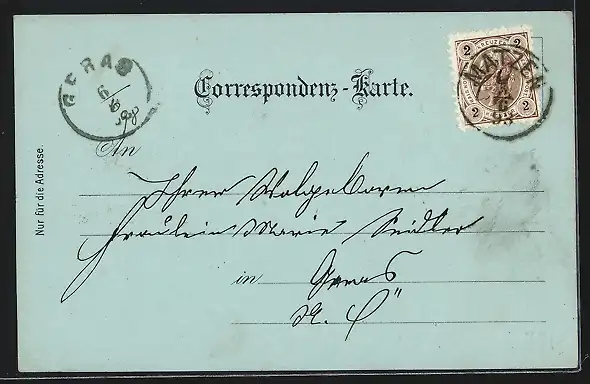 GERAS
6/9 98
Correspondenz-Karte.
2 KREUZER 2
MATZEN
2 2
Nur für die Adresse.
An
Ihrer Wolgeboren
Fräulein Marie Seidler
in Geras
N. Ö"